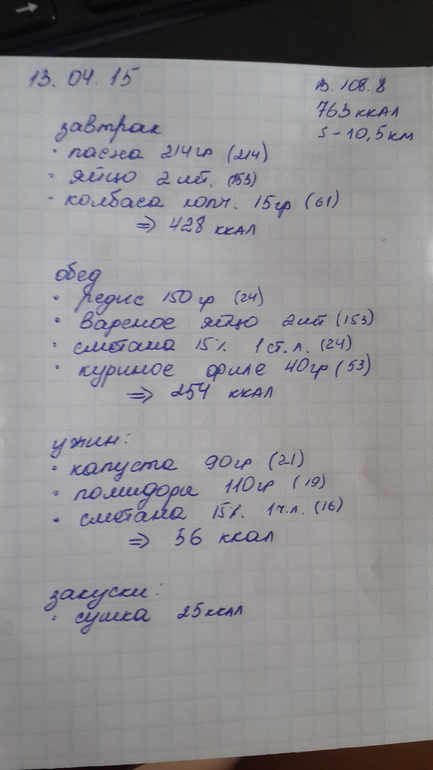 13.04.15
В. 108.8
763 ккал
S - 10,5 км
завтрак
• пасха 214 гр (214)
• яйцо 2 шт. (153)
• колбаса копч. 15 гр (61)
⇒ 428 ккал
обед
• редис 150 гр (24)
• вареное яйцо 2 шт (153)
• сметана 15% 1 ст. л. (24)
• куриное филе 40 гр (53)
⇒ 254 ккал
ужин:
• капуста 90 гр (21)
• помидоры 110 гр (19)
• сметана 15% 1 ч. л. (16)
⇒ 56 ккал
закуски:
• сушка 25 ккал